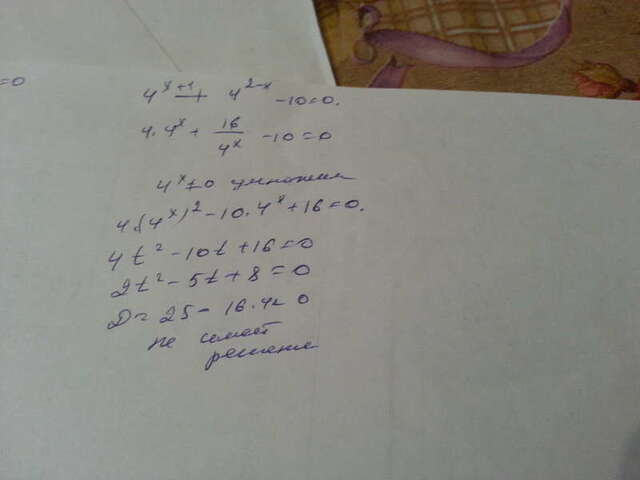 =0
4^{x+1} + 4^{2-x} - 10 = 0.
4 · 4^x + 16/4^x - 10 = 0
4^x ≠ 0 умножим
4 · (4^x)^2 - 10 · 4^x + 16 = 0.
4t^2 - 10t + 16 = 0
2t^2 - 5t + 8 = 0
D = 25 - 16 · 4 < 0
не имеет
решения